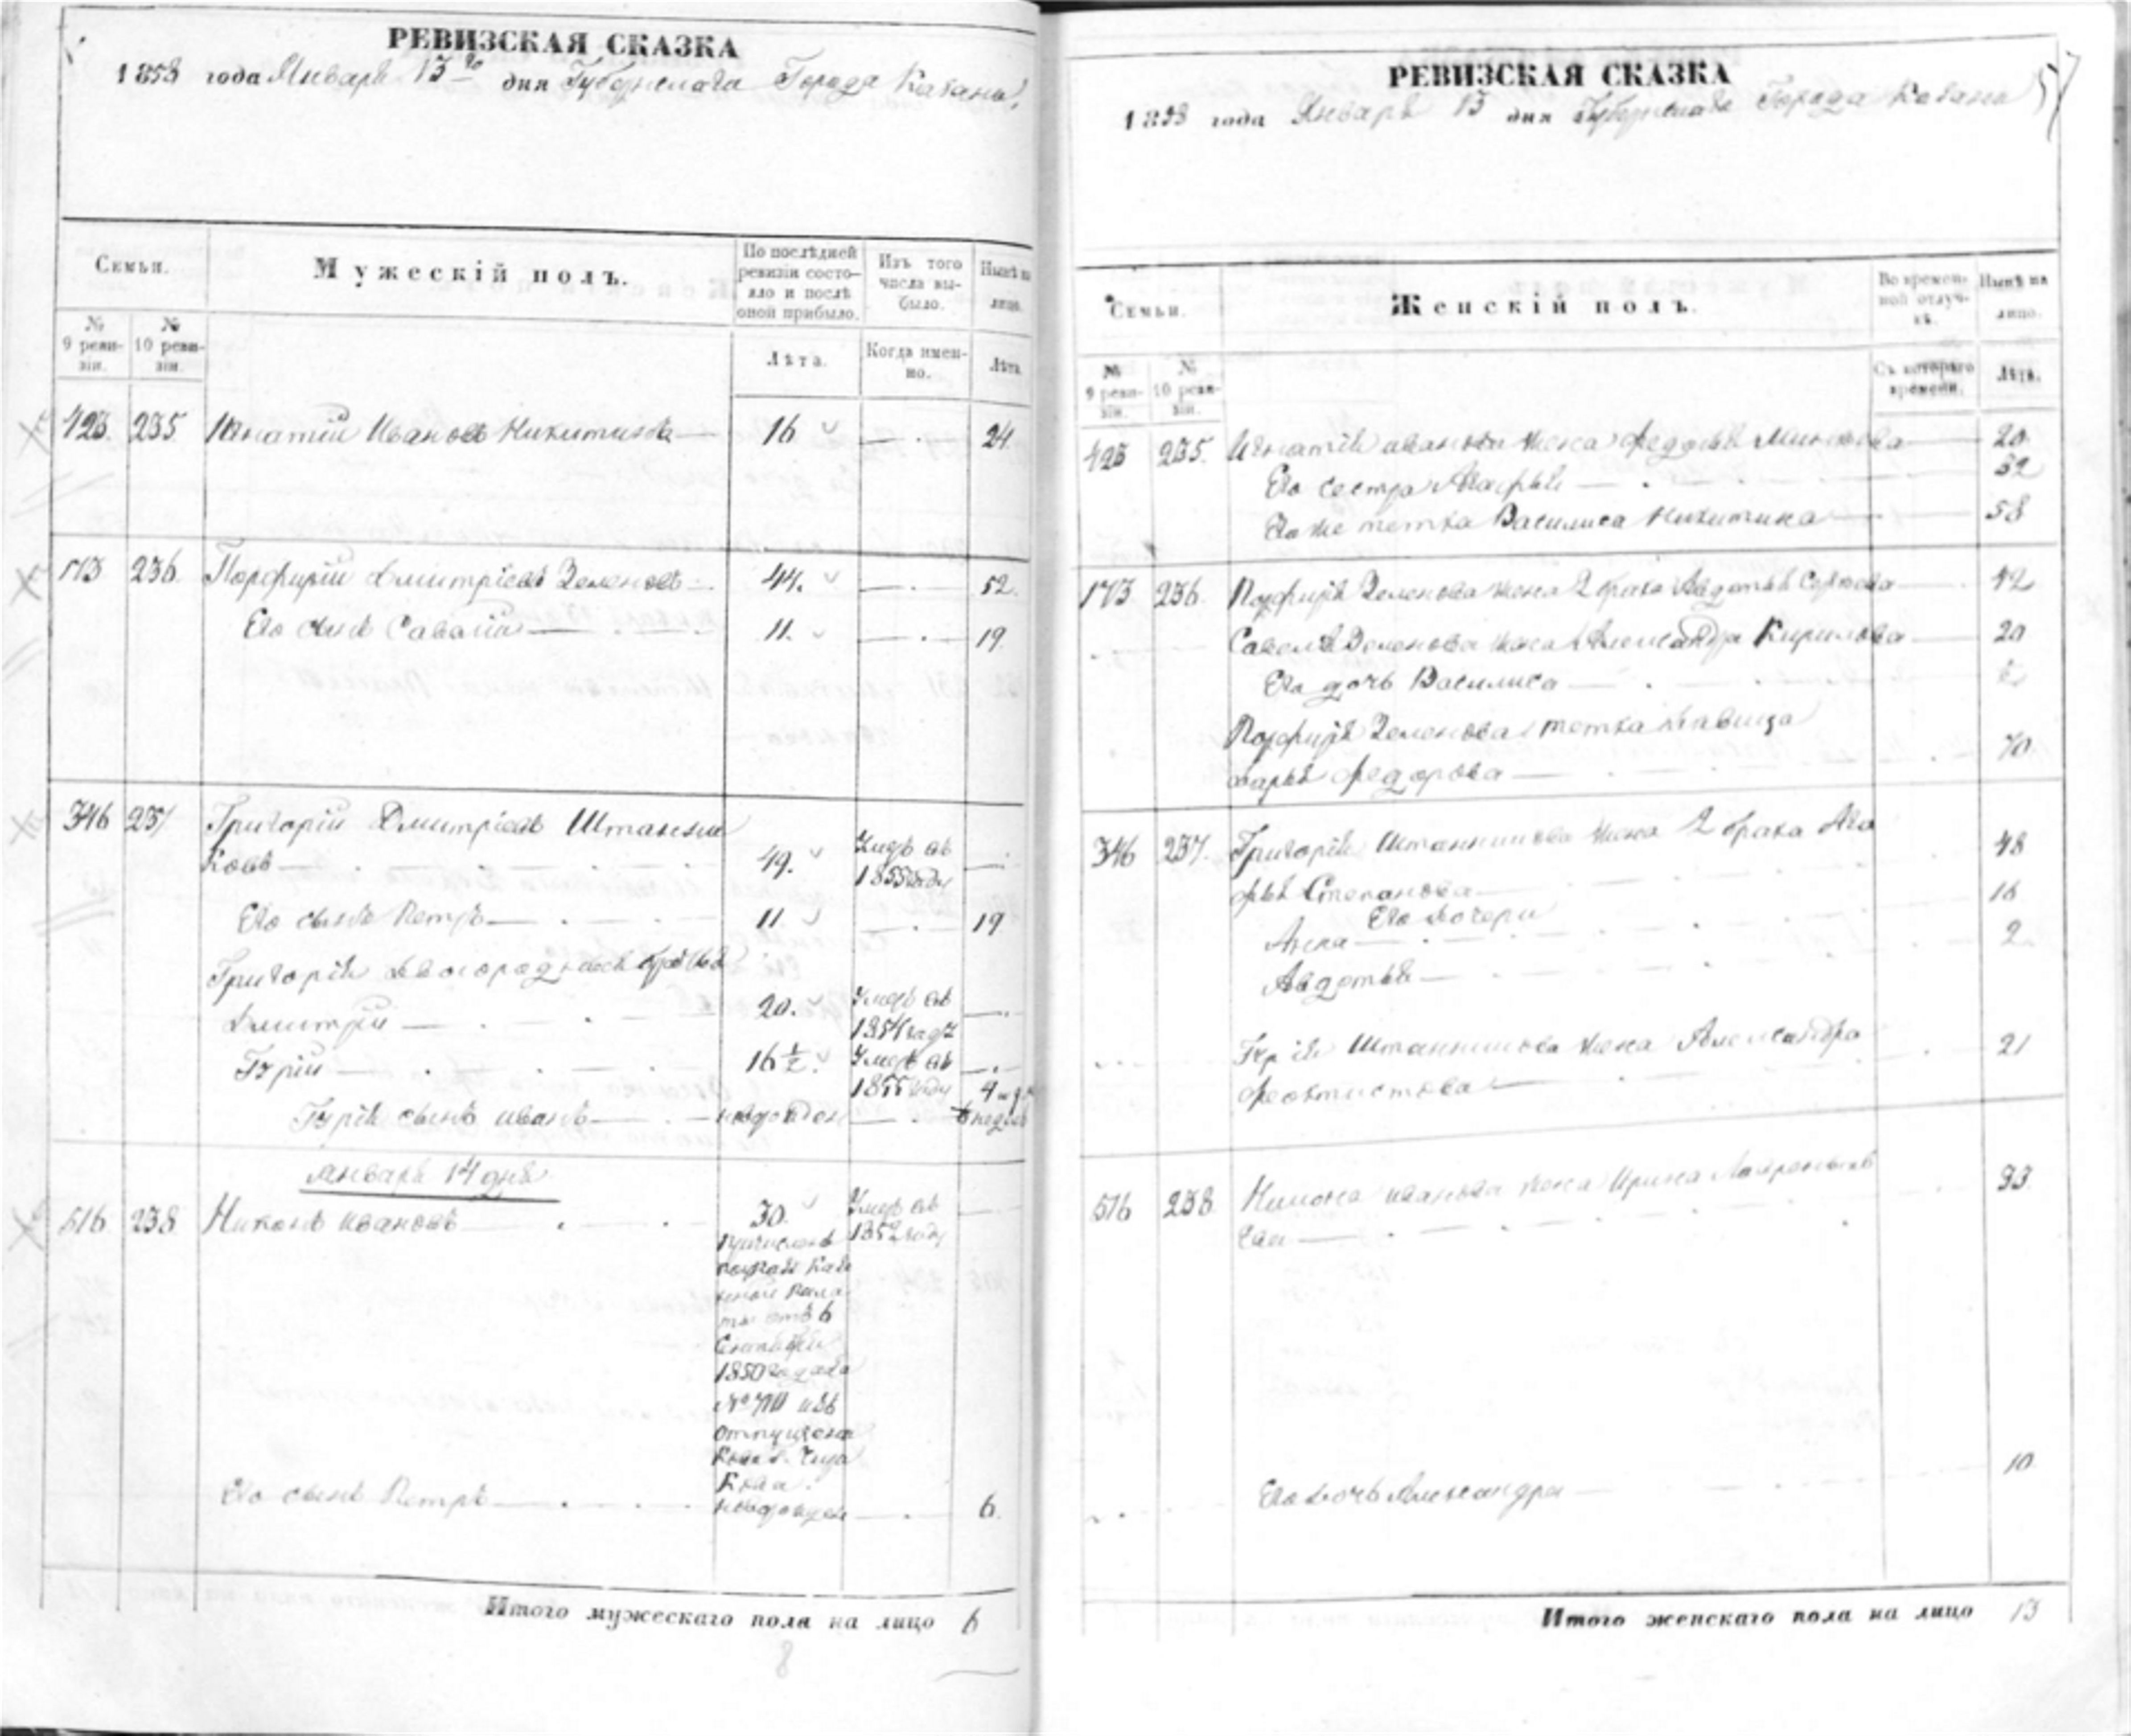 РЕВИЗСКАЯ СКАЗКА
1858 года Января 13го дня Губернскаго Города Казани
Семьи.
Мужескій полъ.
По послѣдней ревизіи состо-
яло и послѣ
оной прибыло.
Изъ того
числа вы-
было.
Нынѣ на
лицо.
№
9 реви-
зіи.
№
10 реви-
зіи.
Лѣта.
Когда имен-
но.
Лѣта.
423. 235. Игнатій Ивановъ Никитинъ 16 24.
173 236. Порфирій Дмитріевъ Зеленовъ 44. 52.
Его сынъ Савелій 11. 19.
346 237 Григорій Дмитріевъ Штанни
ковъ 49. Умеръ въ
1855 году
Его сынъ Петръ 11 19
Григорія двоюродные братья
Дмитрій 20. Умеръ въ
1854 году
Гурій 16 ½. Умеръ въ
1855 году
Гурія сынъ Иванъ новорожден недель
Января 14 дня
516 238 Никонъ Ивановъ 30. Умеръ въ
1852 году
Причисленъ
по указу Казе
нной Пала
ты отъ 6
Сентября
1850 года за
№ изъ
отпущенн
Его сынъ Петръ новорожден 6.
Итого мужескаго пола на лицо 6
8
РЕВИЗСКАЯ СКАЗКА
1858 года Января 13 дня Губернскаго Города Казани
57
Семьи.
Женскій полъ.
Во времен-
ной отлуч-
кѣ.
Нынѣ на
лицо.
№
9 реви-
зіи.
№
10 реви-
зіи.
Съ котораго
времени.
Лѣта.
423 235. Игнатія Иванова жена Федосья 20
Его сестра Марья 32
Его же тетка Василиса Никитина 58
173 236. Порфирія Зеленова жена 2 брака Авдотья 42
Савелья Зеленова жена Александра Кирилова 20
Его дочь Василиса
Порфирія Зеленова тетка девица
Дарья Федорова 70
346 237. Григорія Штанникова жена 2 брака Ага
фья Степанова 48
Его дочери
Анна 16
Авдотья 2
Гурія Штанникова жена Александра
Феоктистова 21
516 238 Никона Иванова жена Ирина Лаврентье
ва 33
Его дочь Александра 10
Итого женскаго пола на лицо 13